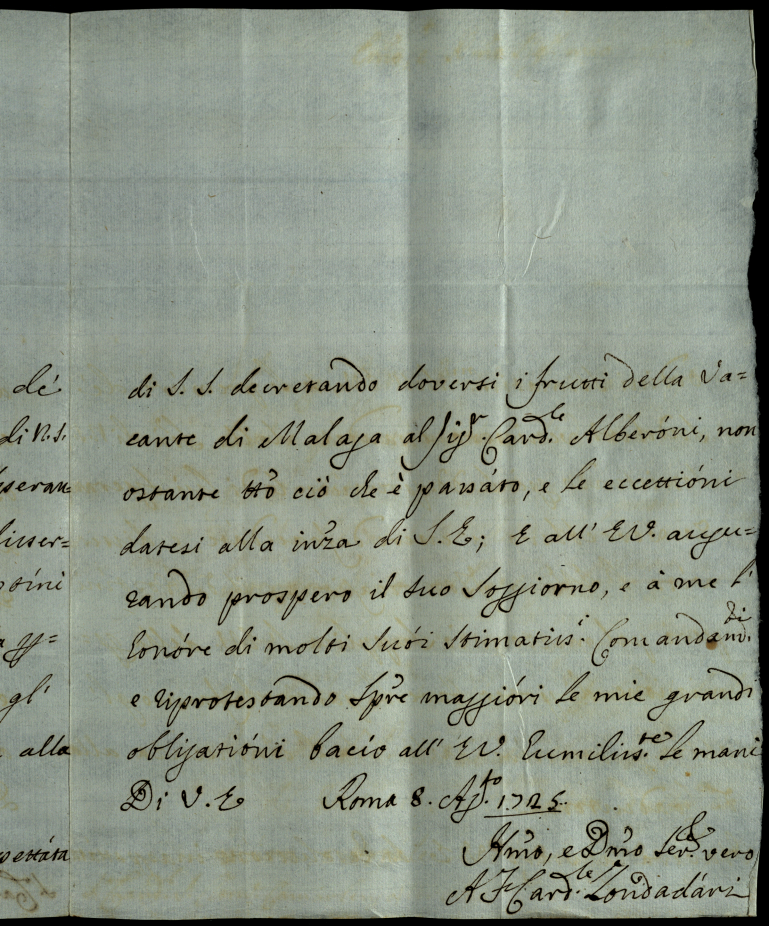 dé
di N.S.
alla
gl'
di S. S. decretando doversi i frutti della Va=
cante di Malaga al Sig.r Card.le Alberóni, non
ostante tto ciò che è passáto, e le eccettióni
datesi alla inza di S. E; E all' E V. augu=
rando prospero il suo Soggiorno, e à me l'
honóre di molti Suói Stimatiss.i Comandam.ti
e riprotestando Spre maggióri le mie grandi
obligatióni bacio all' E V. humiliss.te le mani
Di V. E Roma 8. Ag.to 1725.
Hmo, e Dmo Ser.e vero
A F Card.le Zondadári